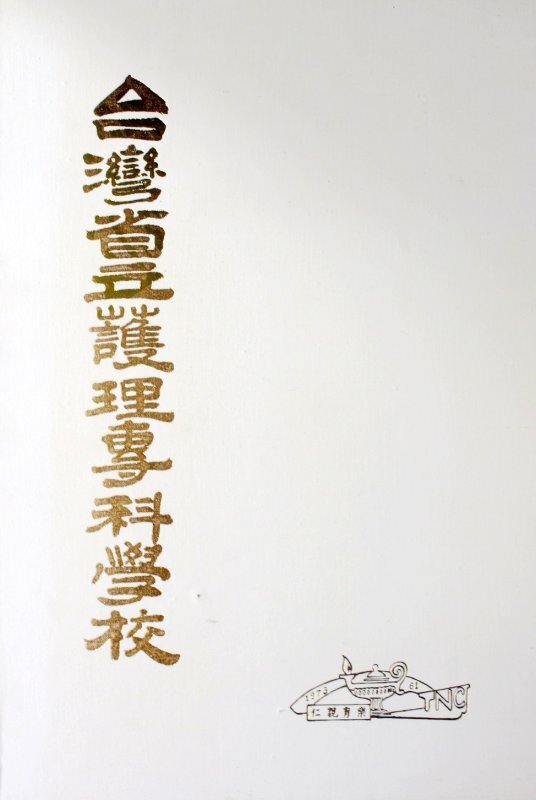 台灣省立護理專科學校
1973
61
樂育親仁